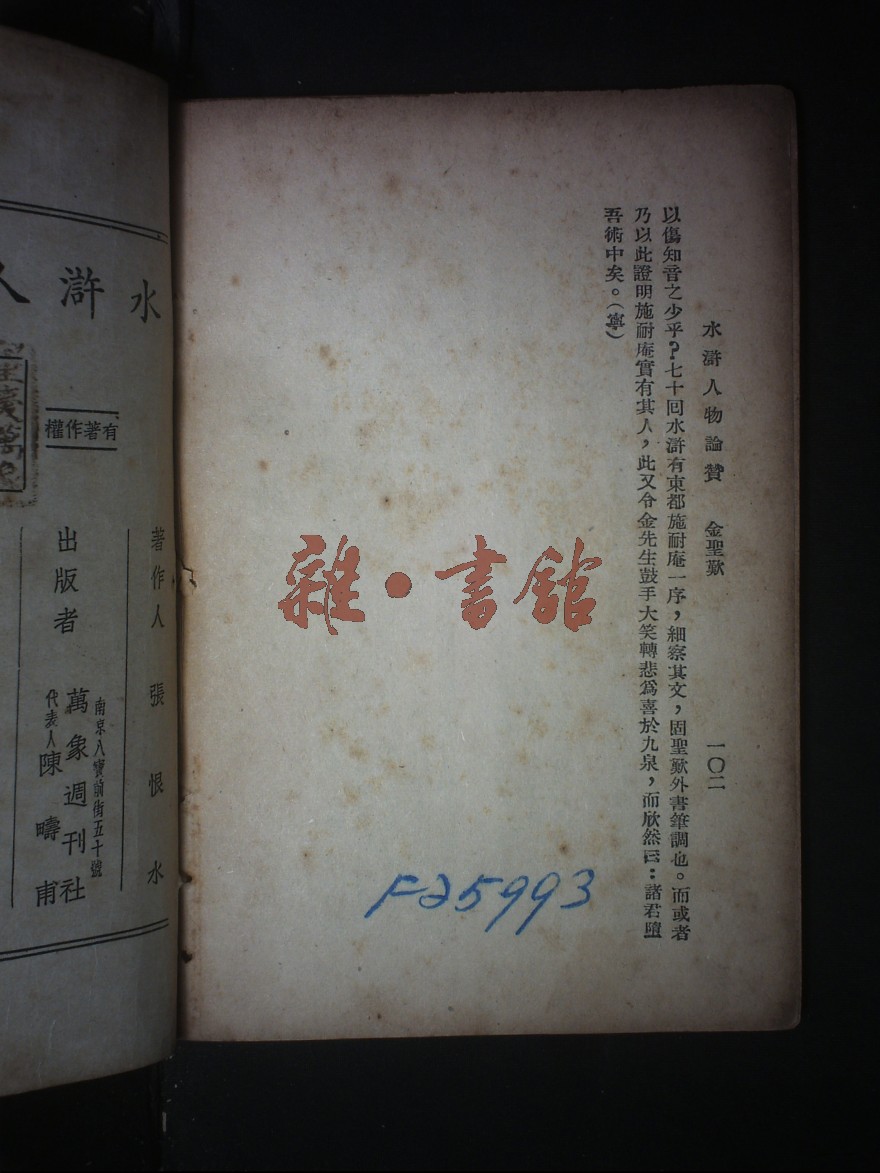 水滸人物論贊　金聖歎　一〇二
以傷知音之少乎?七十回水滸有東都施耐庵一序,細察其文,固聖歎外書筆調也。而或者
乃以此證明施耐庵實有其人,此又令金先生鼓手大笑轉悲爲喜於九泉,而欣然曰:諸君墮
吾術中矣。(寧)
雜·書館
F25993
水滸人
有著作權
著作人 張恨水
出版者
南京八寶前街五十號
萬象週刊社
代表人陳疇甫